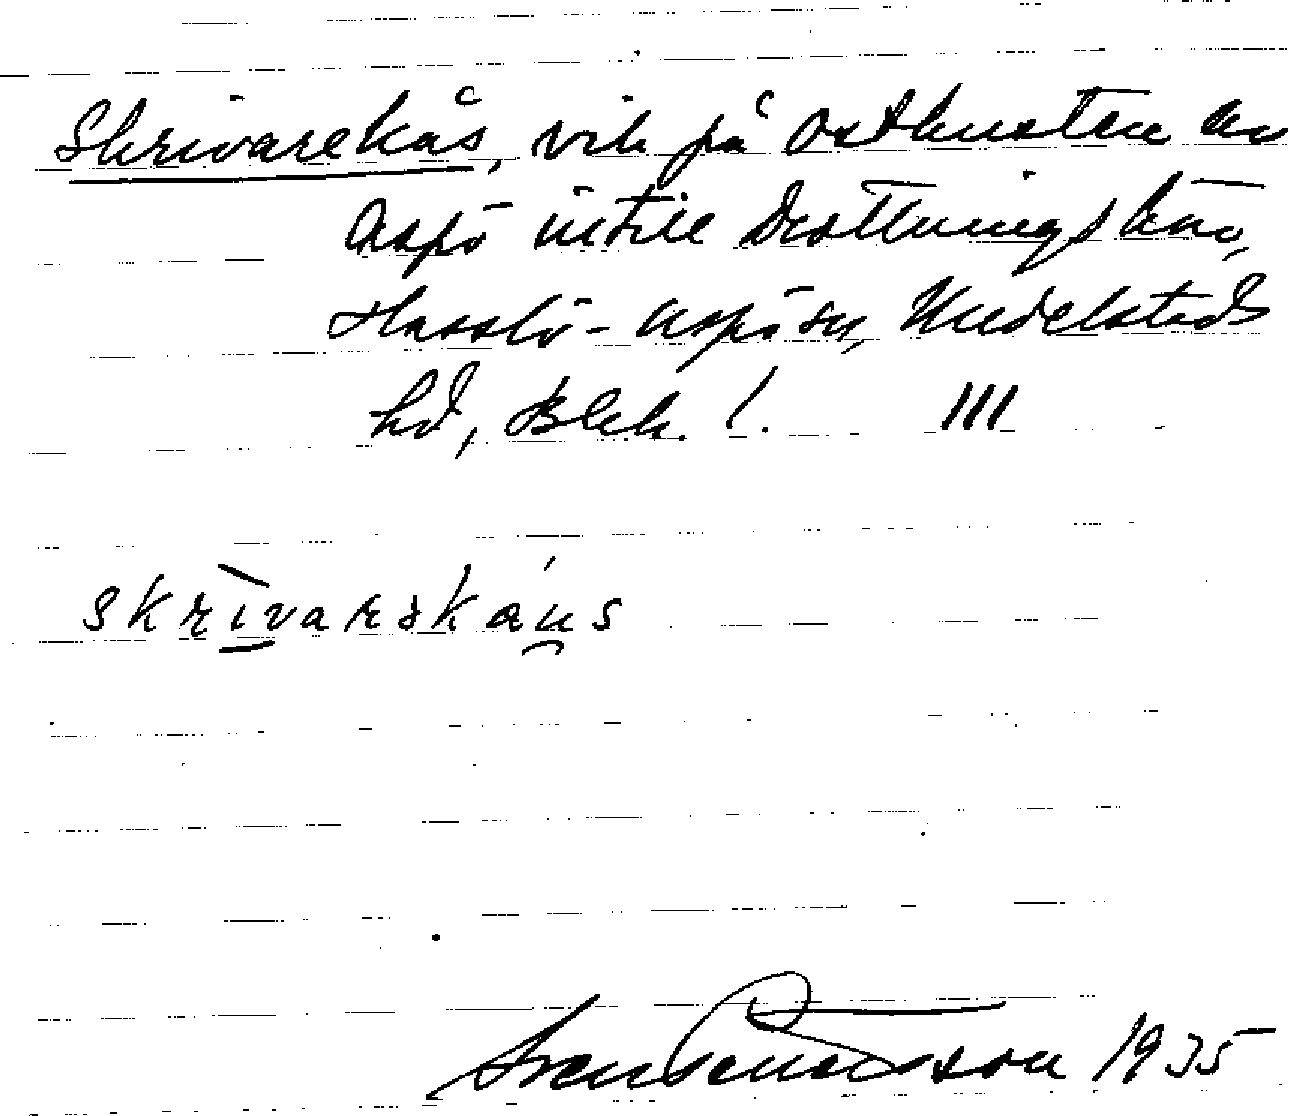 Skrivarekås, vik på ostkusten av
Aspö intill Drottningskär,
Hasslö-Aspö sn, Medelstads
hd, Blek. l. III
skrivarskáus
Sven Benson 1935